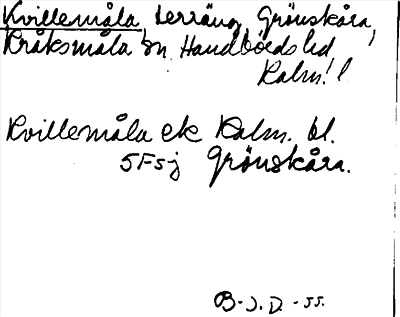 Kvillemåla, terräng, Grönskåra,
Kråksmåla sn. Handbörds hd
Kalm. l
Kvillemåla ek Kalm. bl.
5F5j Grönskåra.
B-J.D. -55.